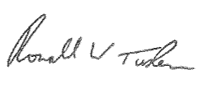 Ronald W Tusler